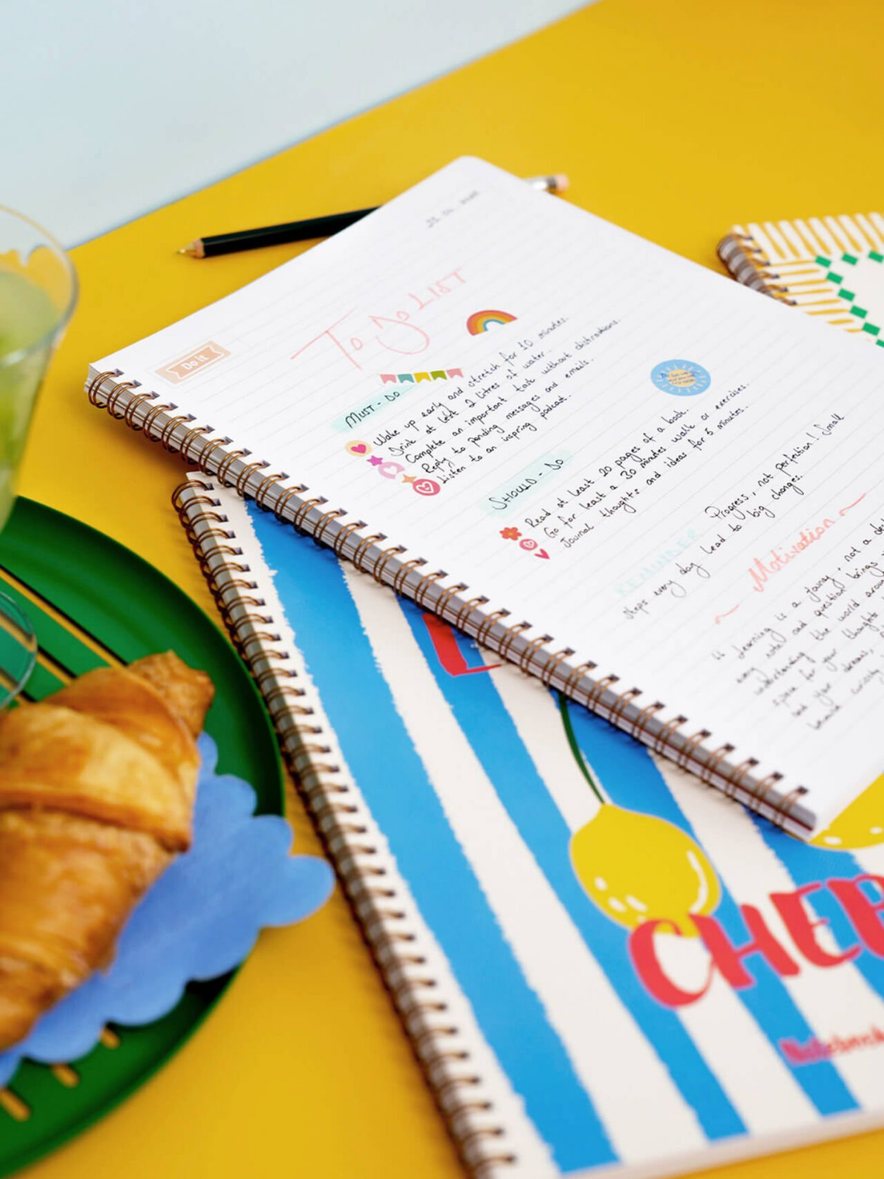 To Do LIST
Do it
MUST - DO
Wake up early and stretch for 10 minutes.
Drink at lest 2 litres of water.
Complete an important task without distractions.
Reply to pending messages and emails.
Listen to an inspring podcast.
SHOULD - DO
Read at least 20 pages of a book.
Go for least a 30 minutes walk or exercises.
Journal thoughts and ideas for 5 minutes.
REMINDER Progress, not perfection! Small
steps every day lead to big changes.
~ Motivation ~
" Learning is a
, not a
every
and question brings
understanding the world
for your thoughts
and your dreams,
CHEE
Notebook